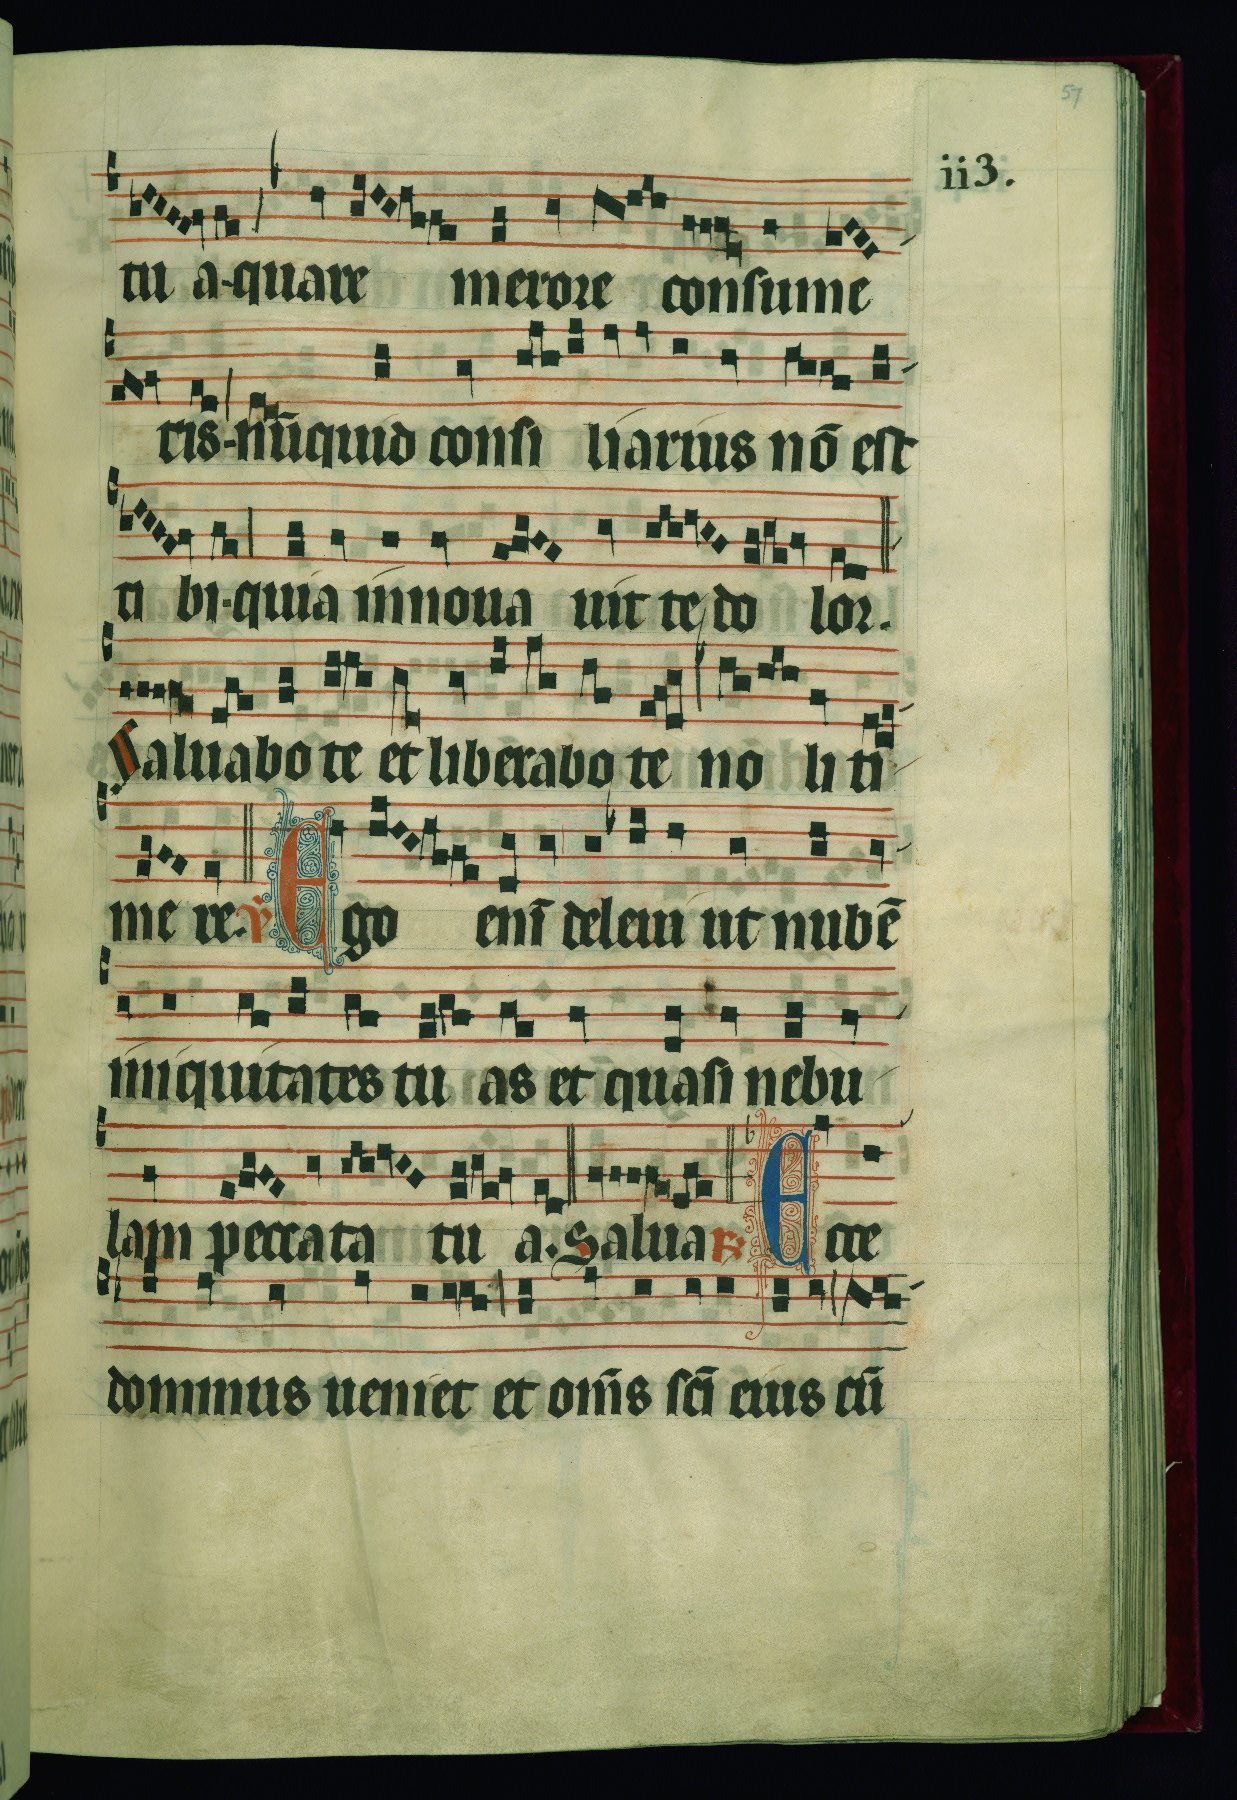 57
ii3.
tu a·quare merore consume
ris·nūquid consi liarius nō est
ti bi·quia innoua uit te do lor.
Saluabo te et liberabo te no li ti
me re. ℣ Ego enī deleui ut nubē
iniquitates tu as et quasi nebu
lam peccata tu a. Salua ℟ Ecce
dominus ueniet et om̄s sc̄i eius cū